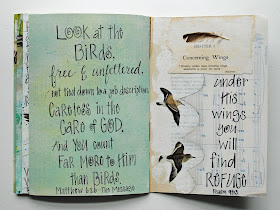 Look at the
BiRDS,
free & unfettered,
not tied down to a job description,
CaReless in the
CaRe of GOD.
And you count
FaR MoRe to Him
than BiRDS.
Matthew 6:26 The Message
CHAPTER I
Concerning Wings
under
His
wings
you
will
find
REFUGE
Psalm 91:4